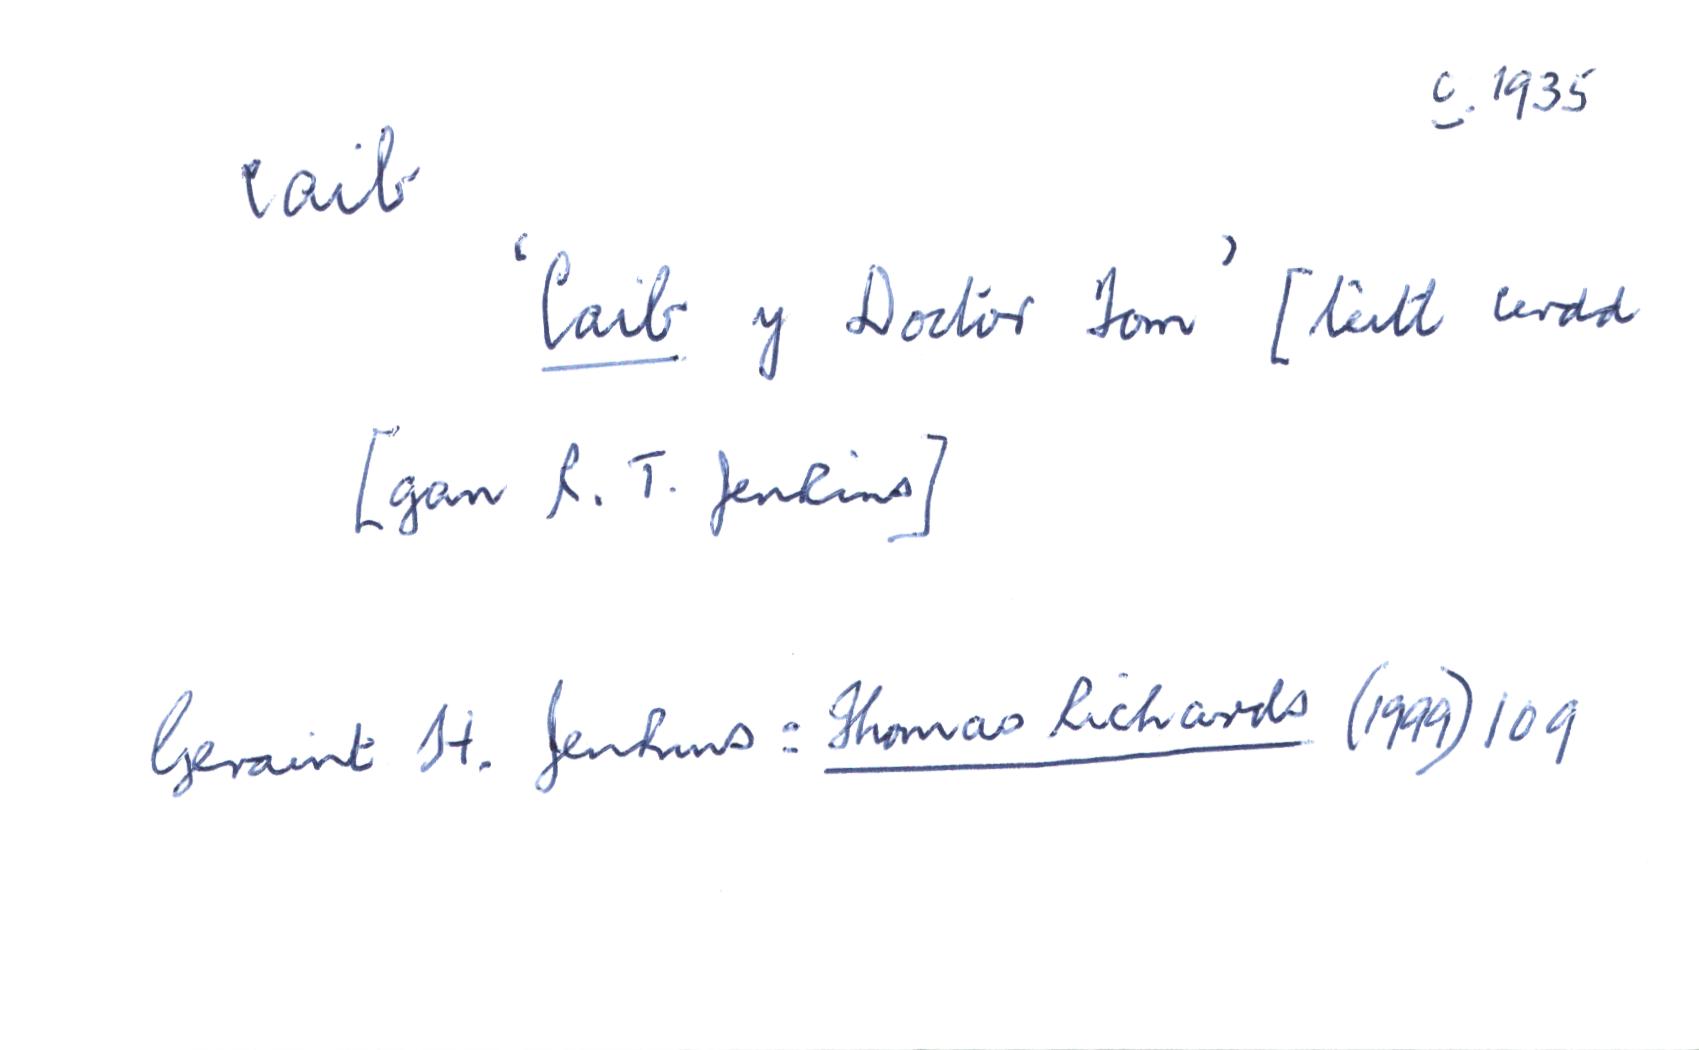 c. 1935
caib
'Caib y Doctor Tom' [teitl cerdd
[gan R. T. Jenkins]
Geraint H. Jenkins : Thomas Richards (1999) 109